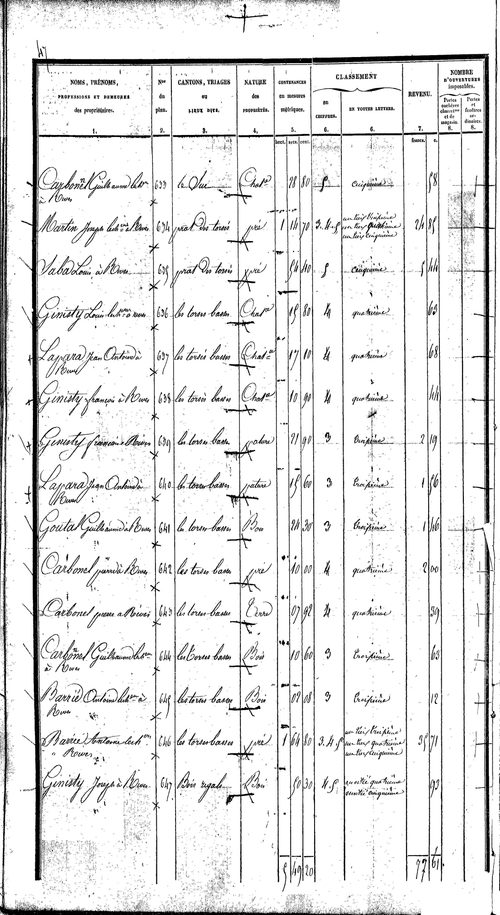 47
NOMS, PRÉNOMS, PROFESSIONS ET DEMEURES des propriétaires. 1.
Nos du plan. 2.
CANTONS, TRIAGES ou LIEUX DITS. 3.
NATURE des PROPRIÉTÉS. 4.
CONTENANCES en mesures métriques. 5. hect. ares. cent.
CLASSEMENT
EN CHIFFRES. 6.
EN TOUTES LETTRES. 6.
REVENU. 7. francs. c.
NOMBRE D'OUVERTURES imposables.
Portes cochères charretières et de magasin. 8.
Portes et fenêtres ordinaires. 8.
Carbonel Guillaume à Rives 633 le Suc Chat 28 80 5 cinquième 58
Martin Joseph à Rives 634 prat des torsés pré 1 14 70 3.4.5 un tiers troisième un tiers quatrième un tiers cinquième 24 85
Saba Louis à Rives 635 prat des torsés pré 54 40 5 cinquième 5 44
Ginisty Louis à Rives 636 les torsés basses Chat 15 80 4 quatrième 63
Lapara Jean Antoine à Rives 637 les torsés basses Chat 17 10 4 quatrième 68
Ginisty françois à Rives 638 les torsés basses Chat 10 90 4 quatrième 44
Ginisty françois à Rives 639 les torsés basses pature 21 90 3 troisième 2 19
Lapara Jean Antoine à Rives 640 les torsés basses pature 15 60 3 troisième 1 56
Goutal Guillaume à Rives 641 les torsés basses Bois 24 30 3 troisième 1 46
Carbonel pierre à Rives 642 les torsés basses pré 10 00 4 quatrième 2 00
Carbonel pierre à Rives 643 les torsés basses Terre 07 92 4 quatrième 39
Carbonel Guillaume à Rives 644 les torsés basses Bois 10 60 3 troisième 63
Barrié Antoine à Rives 645 les torsés basses Bois 02 08 3 troisième 12
Barrié Antoine à Rives 646 les torsés basses pré 1 64 80 3.4.5 un tiers troisième un tiers quatrième un tiers cinquième 35 71
Ginisty Joseph à Rives 647 Bois regale Bois 50 30 4.5 moitié quatrième moitié cinquième 93
5 49 20 77 61